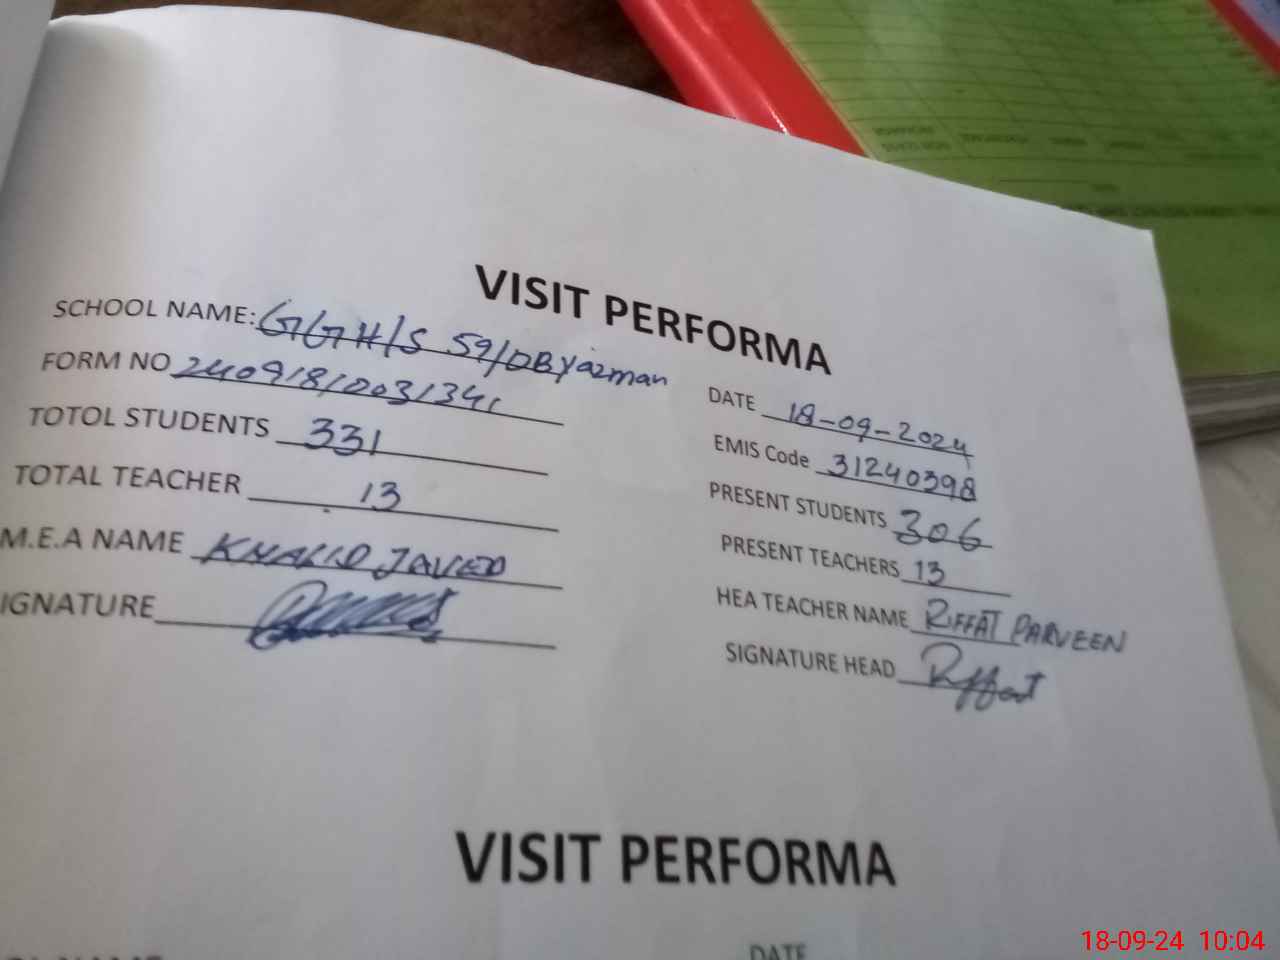 VISIT PERFORMA
SCHOOL NAME: GGH/S 59/DB Yazman
FORM NO
DATE 18-09-2024
TOTOL STUDENTS 331
EMIS Code 31240398
TOTAL TEACHER 13
PRESENT STUDENTS 306
M.E.A NAME KHALID JAVED
PRESENT TEACHERS 13
IGNATURE
HEA TEACHER NAME RIFFAT PARVEEN
SIGNATURE HEAD Riffat
VISIT PERFORMA
DATE
18-09-24 10:04